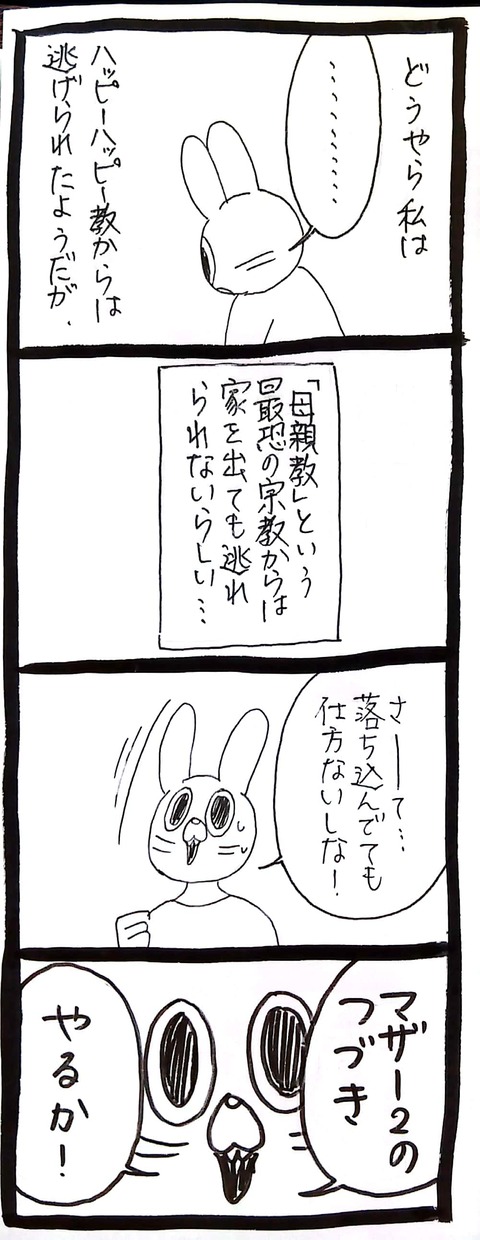 どうやら私は
………
ハッピーハッピー教からは
逃げられたようだが、
「母親教」という
最恐の宗教からは
家を出ても逃れ
られないらしい…
さーて…
落ち込んでても
仕方ないしな！
マザー2の
つづき
やるか！